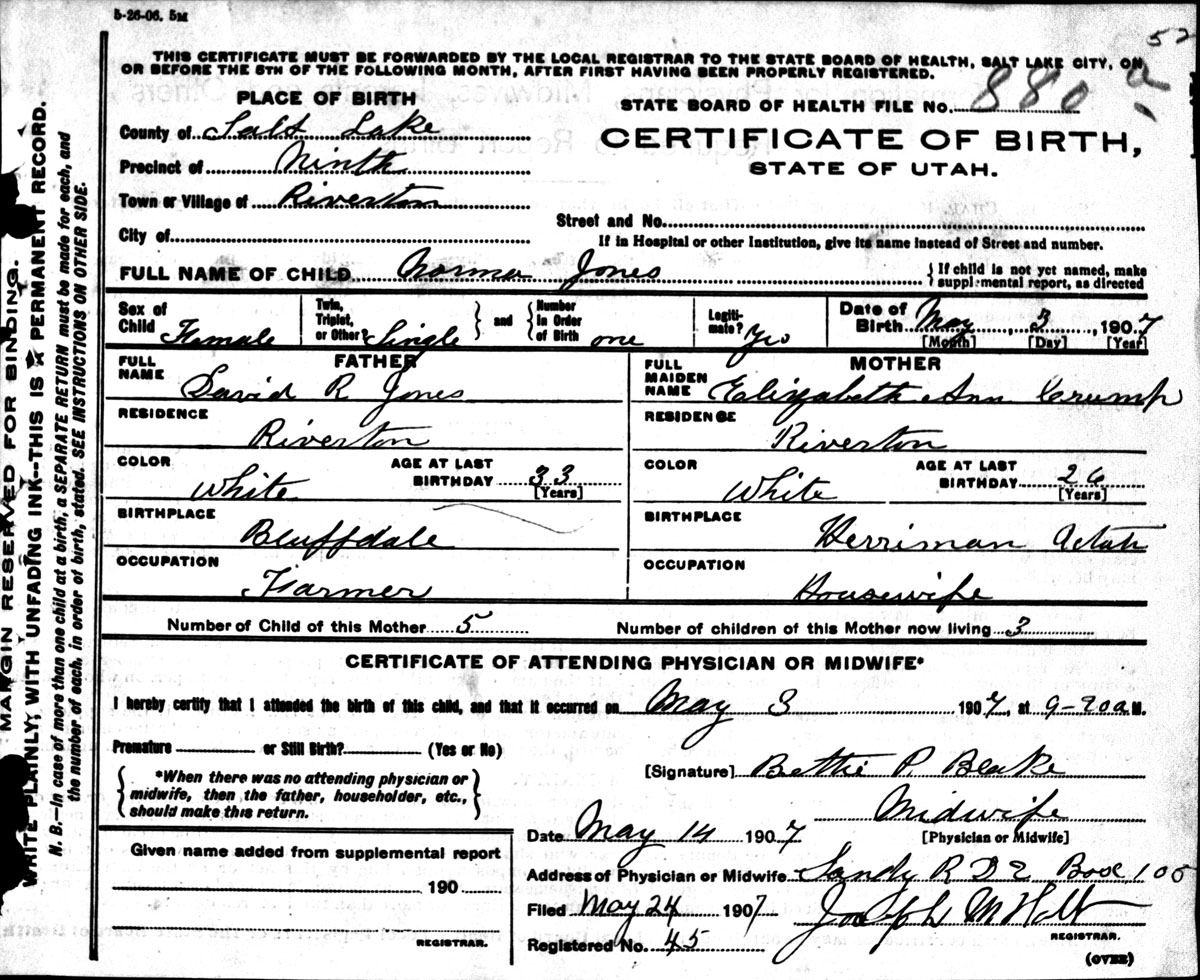 5-26-06. 5M
52
THIS CERTIFICATE MUST BE FORWARDED BY THE LOCAL REGISTRAR TO THE STATE BOARD OF HEALTH, SALT LAKE CITY, ON
OR BEFORE THE 5TH OF THE FOLLOWING MONTH, AFTER FIRST HAVING BEEN PROPERLY REGISTERED.
PLACE OF BIRTH
STATE BOARD OF HEALTH FILE No. 880 a
County of Salt Lake
CERTIFICATE OF BIRTH,
Precinct of Ninth
STATE OF UTAH.
Town or Village of Riverton
Street and No.
City of
If in Hospital or other Institution, give its name instead of Street and number.
FULL NAME OF CHILD Norma Jones
{ If child is not yet named, make
supplemental report, as directed
Sex of Child Female
Twin, Triplet, or Other? Single } and { Number in Order of Birth one
Legitimate? Yes
Date of Birth May, 3, 1907
[Month] [Day] [Year]
FATHER
FULL NAME David R Jones
RESIDENCE
Riverton
COLOR White
AGE AT LAST BIRTHDAY 33 [Years]
BIRTHPLACE
Bluffdale
OCCUPATION
Farmer
MOTHER
FULL MAIDEN NAME Elizabeth Ann Crump
RESIDENCE
Riverton
COLOR White
AGE AT LAST BIRTHDAY 26 [Years]
BIRTHPLACE
Herriman
OCCUPATION
Housewife
Number of Child of this Mother 5
Number of children of this Mother now living 3
CERTIFICATE OF ATTENDING PHYSICIAN OR MIDWIFE*
I hereby certify that I attended the birth of this child, and that it occurred on May 3 1907, at 9-20 a M.
Premature or Still Birth? (Yes or No)
{ *When there was no attending physician or
midwife, then the father, householder, etc.,
should make this return. }
[Signature] Bettie P. Blake
Midwife
[Physician or Midwife]
Date May 14 1907
Given name added from supplemental report
190
REGISTRAR.
Address of Physician or Midwife Sandy R D 2 Box 105
Filed May 24 1907
Joseph M Holt
REGISTRAR.
Registered No. 45
(OVER)
MARGIN RESERVED FOR BINDING.
WRITE PLAINLY, WITH UNFADING INK--THIS IS A PERMANENT RECORD.
N. B.—In case of more than one child at a birth, a SEPARATE RETURN must be made for each, and
the number of each, in order of birth, stated. SEE INSTRUCTIONS ON OTHER SIDE.